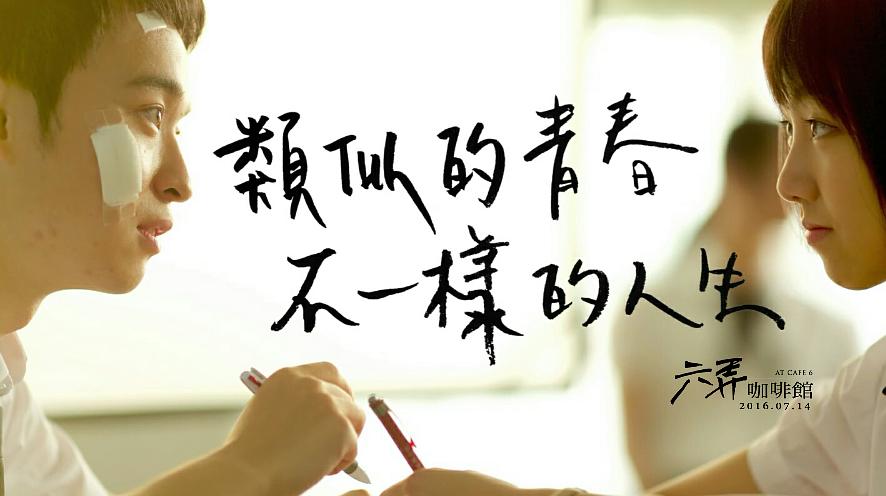 類似的青春
不一樣的人生
六弄
AT CAFE 6
咖啡館
2016.07.14